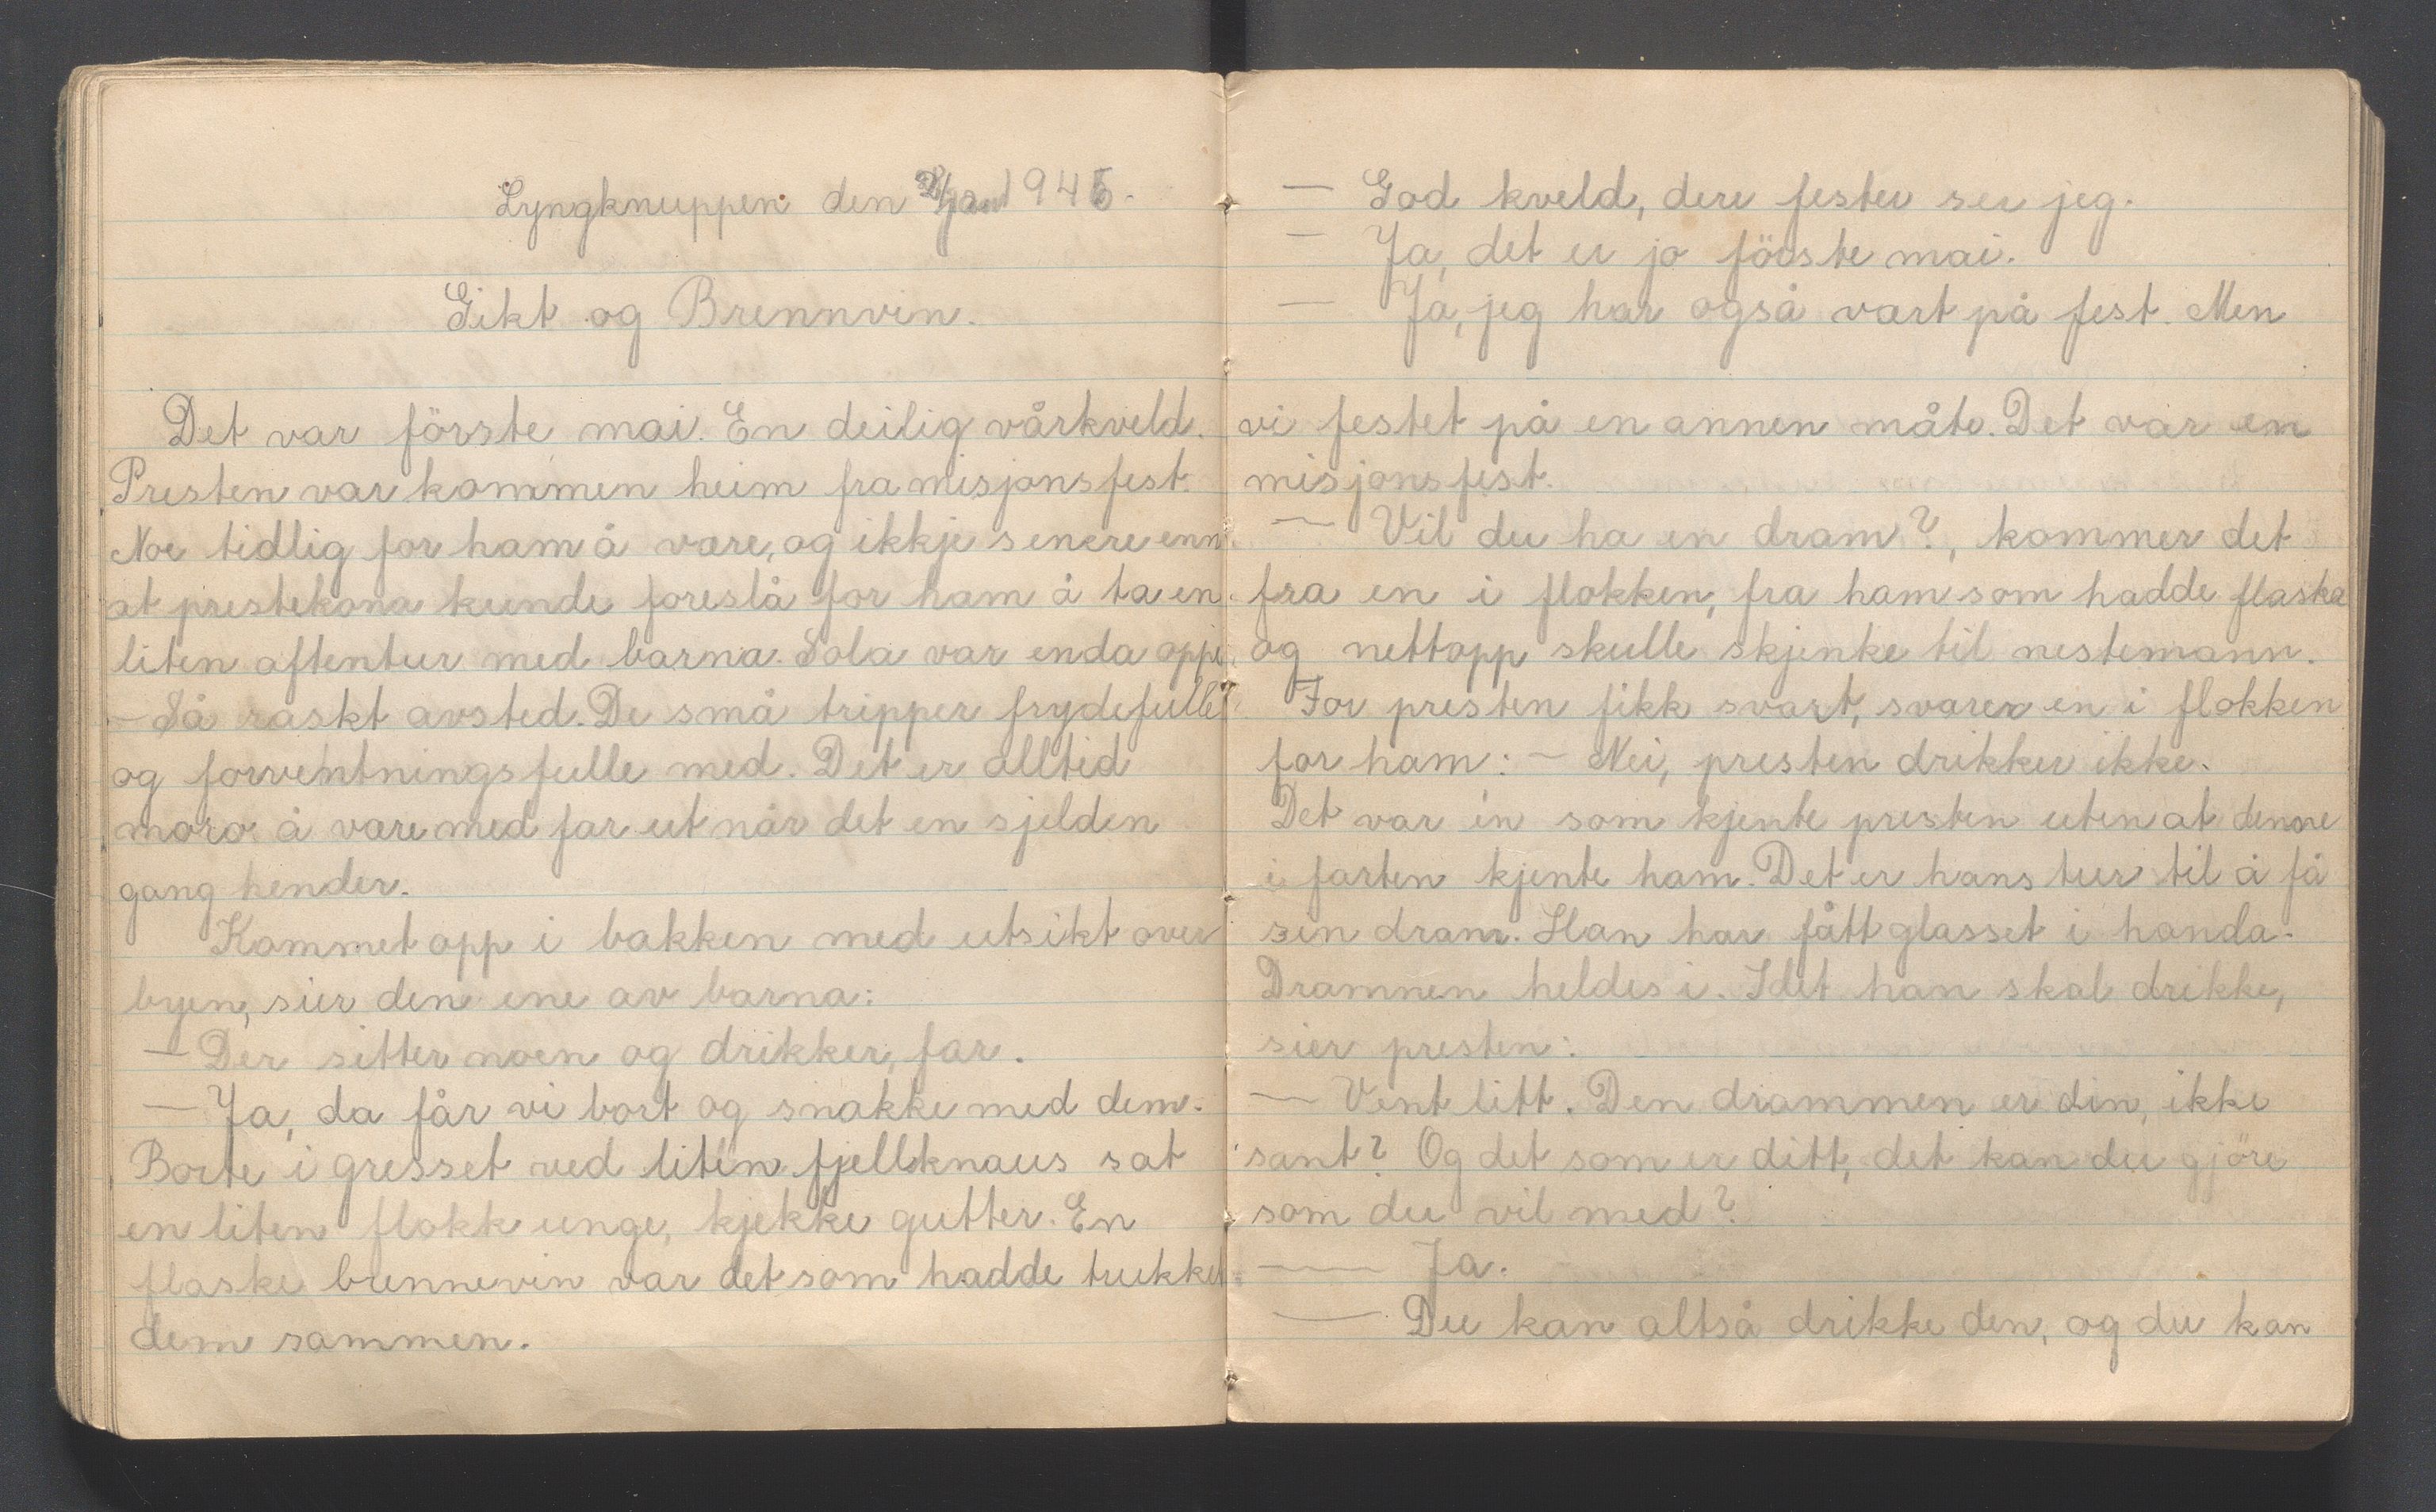 Lyngknuppen den 1945.
Gikt og Brennvin.
Det var förste mai. En deilig vårkveld.
Presten var kommen heim fra misjonsfest.
Noe tidlig for ham å være, og ikkje senere enn
at prestekona kunde foreslå for ham å ta en
liten aftentur med barna. Sola var enda oppe.
- Så raskt avsted. De små tripper frydefulle
og forventningsfulle med. Det er alltid
moro å være med far ut når det en sjelden
gang hender.
Kommet opp i bakken med utsikt over
byen, sier den ene av barna:
- Der sitter noen og drikker, far.
- Ja, da får vi bort og snakke med dem.
Borte i gresset ved liten fjellknaus sat
en liten flokk unge, kjekke gutter. En
flaske brennevin var det som hadde trukket
dem sammen.
- God kveld, dere fester ser jeg.
- Ja, det er jo förste mai.
- Ja, jeg har også vært på fest. Men
vi festet på en annen måte. Det var en
misjonsfest.
- Vil du ha en dram?, kommer det
fra en i flokken, fra ham som hadde flaska
og nettopp skulle skjenke til nestemann.
For presten fikk svart, svarer en i flokken
for ham: - Nei, presten drikker ikke.
Det var én som kjente presten uten at denne
i farten kjente ham. Det er hans tur til å få
sin dram. Han har fått glasset i handa.
Dramnen heldes i. Idet han skal drikke,
sier presten:
- Vent litt. Den drammen er din, ikke
sant? Og det som er ditt, det kan du gjöre
som du vil med?
- Ja.
- Du kan altså drikke den, og du kan